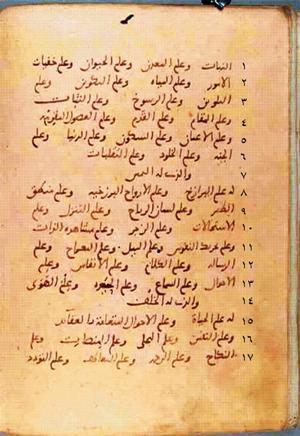 ١ النبات وعلم المعدن وعلم الحيوان وعلم خفيات
٢ الامور وعلم المياه وعلم التكوين وعلم
٣ التلوين وعلم الرسوخ وعلم الثبات
٤ وعلم المقام وعلم القدم وعلم الفصول المقومة
٥ وعلم الاعيان وعلم السكون وعلم الدنيا وعلم
٦ الجنة وعلم الخلود وعلم التقلبات
٧ والذى له اليمين
٨ له علم البرازخ وعلم الارواح البرزخية وعلم منطق
٩ الطير وعلم لسان الرياح وعلم التنزل وعلم
١٠ الاستحالات وعلم الزجر وعلم مشاهدة الذات
١١ وعلم تحريك النفوس وعلم الميل وعلم المعراج وعلم
١٢ الرسالة وعلم الكلام وعلم الانفاس وعلم
١٣ الاحوال وعلم السماع وعلم الحيرة وعلم الهوى
١٤ والذى له الخلف
١٥ له علم الحياة وعلم الاحوال المتعلقة بالعقائد
١٦ وعلم النفس وعلم التجلى وعلم المنصات وعلم
١٧ النكاح وعلم الرحم وعلم التعاطف وعلم التودد